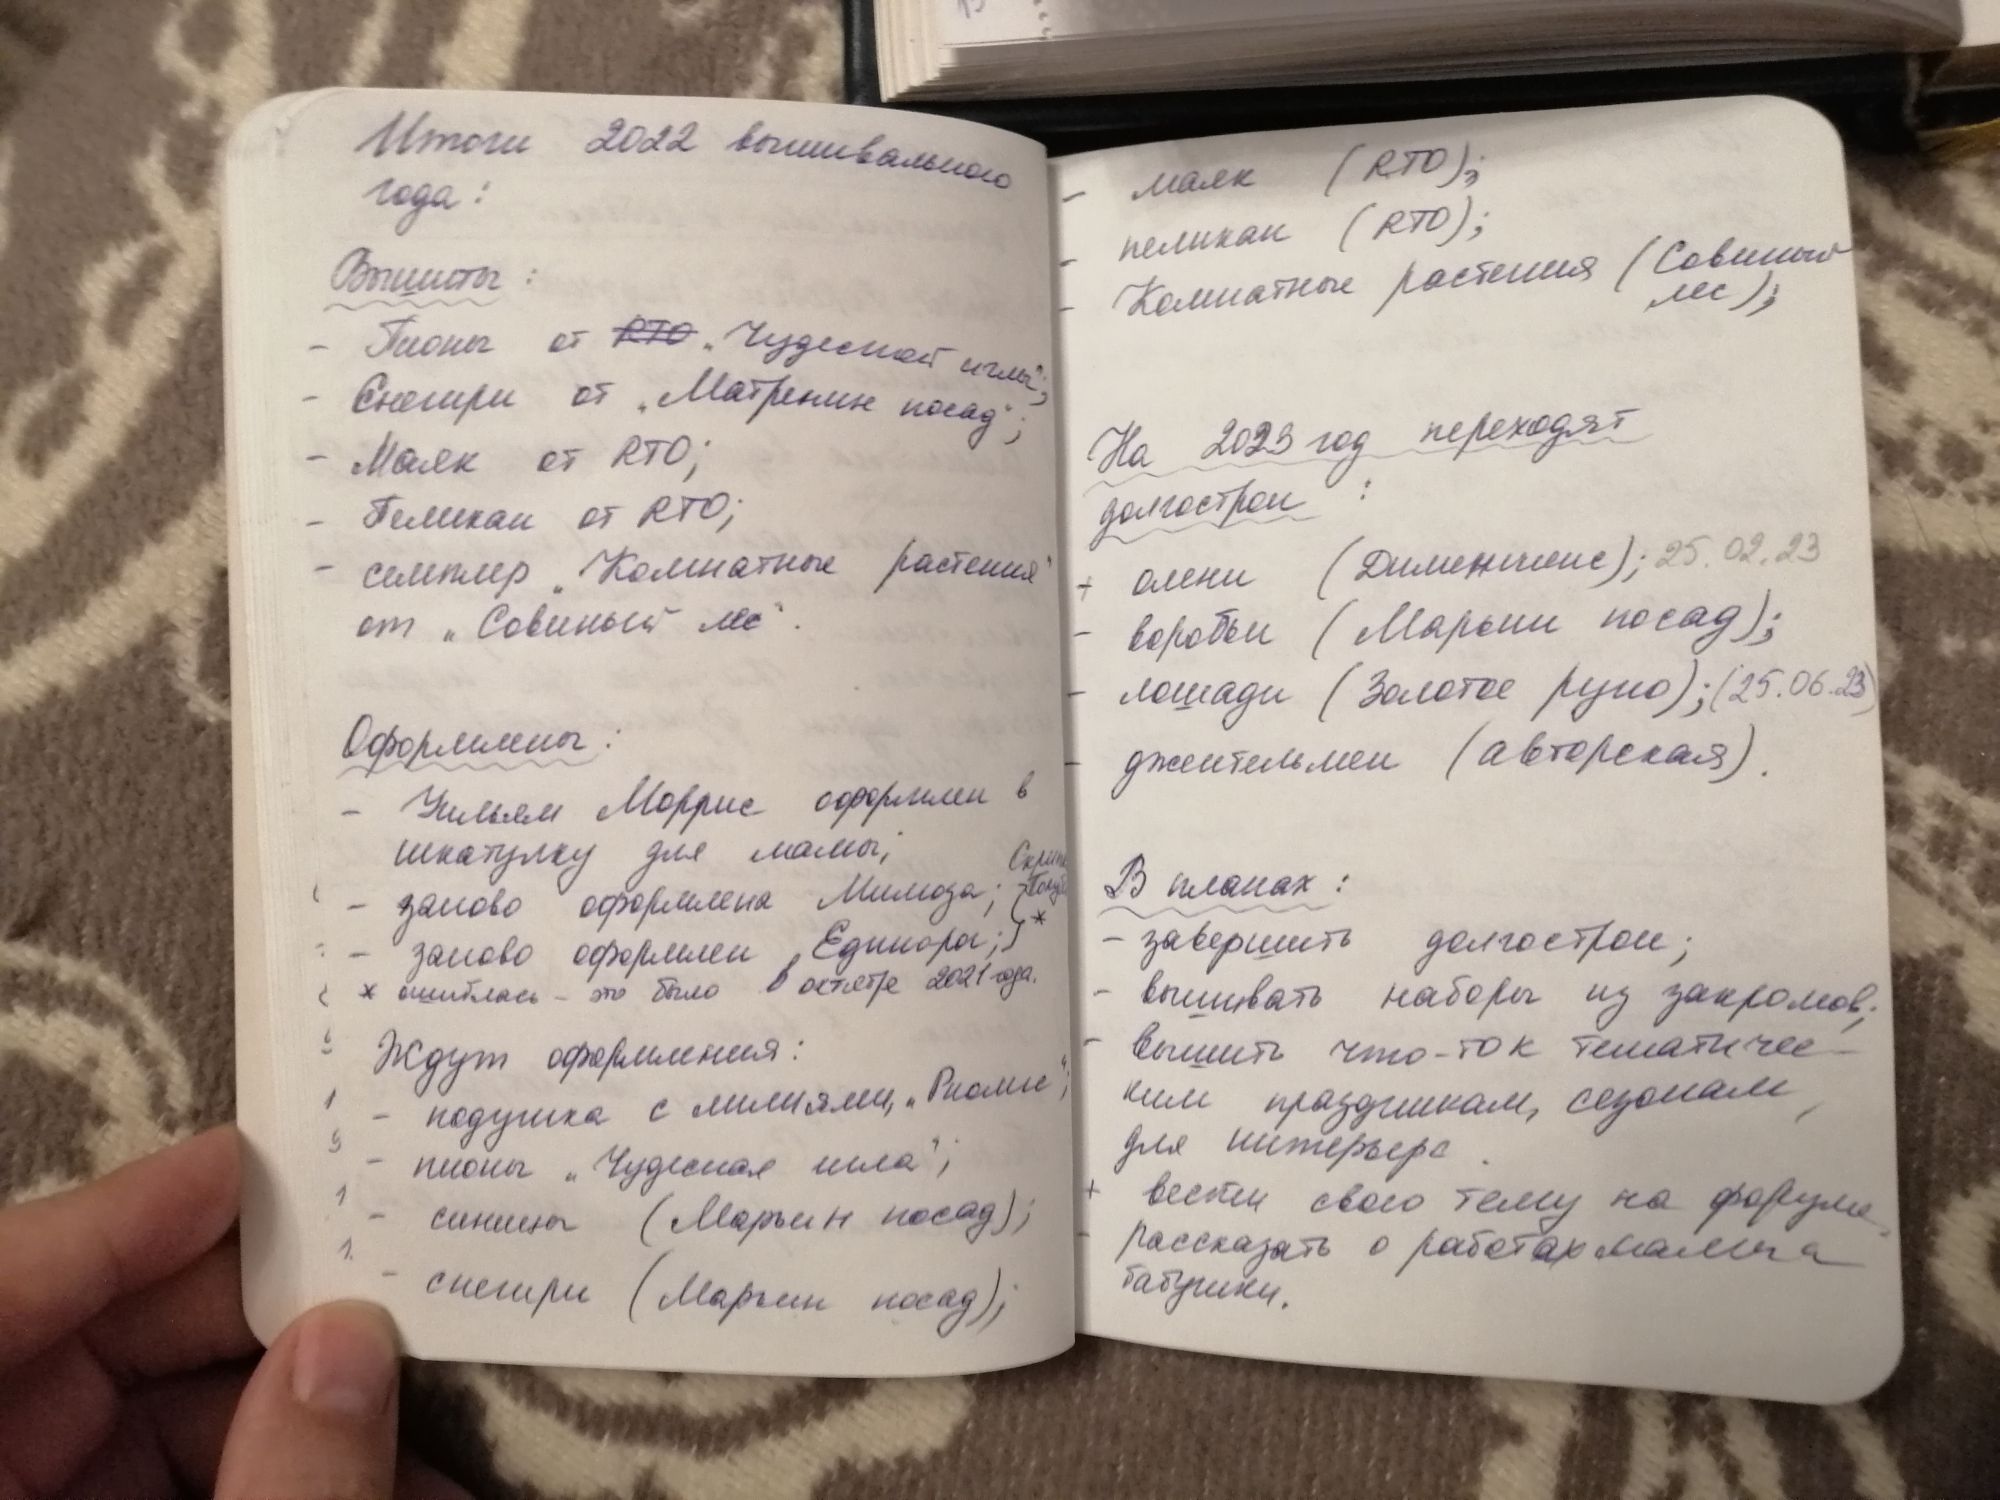 Итоги 2022 вышивального
года:
Вышиты:
- Пионы от RTO „Чудесной иглы";
- Снегири от „Матренин посад";
- Маяк от RTO;
- Пеликан от RTO;
- семплер „Комнатные растения"
от „Совиный лес".
Оформлены:
- Уильям Моррис оформлен в
шкатулку для мамы;
- заново оформлена Мимоза;
- заново оформлен „Единорог; *
* ошиблась - это было в октябре 2021 года.
Ждут оформления:
- подушка с лилиями, „Риолис";
- пионы „Чудесная игла";
- синицы (Марьин посад);
- снегири (Марьин посад);
- маяк (RTO);
- пеликан (RTO);
- Комнатные растения (Совиный
лес);
На 2023 год переходят
долгострои:
+ олени (Дименшенс); 25.02.23
- воробьи (Марьин посад);
- лошади (Золотое руно); (25.06.23)
- джентельмен (авторская).
В планах:
- завершить долгострои;
- вышивать наборы из закромов;
- вышить что-то к тематичес-
ким праздникам, сезонам,
для интерьера.
+ вести свою тему на форуме.
- рассказать о работах мамы и
бабушки.